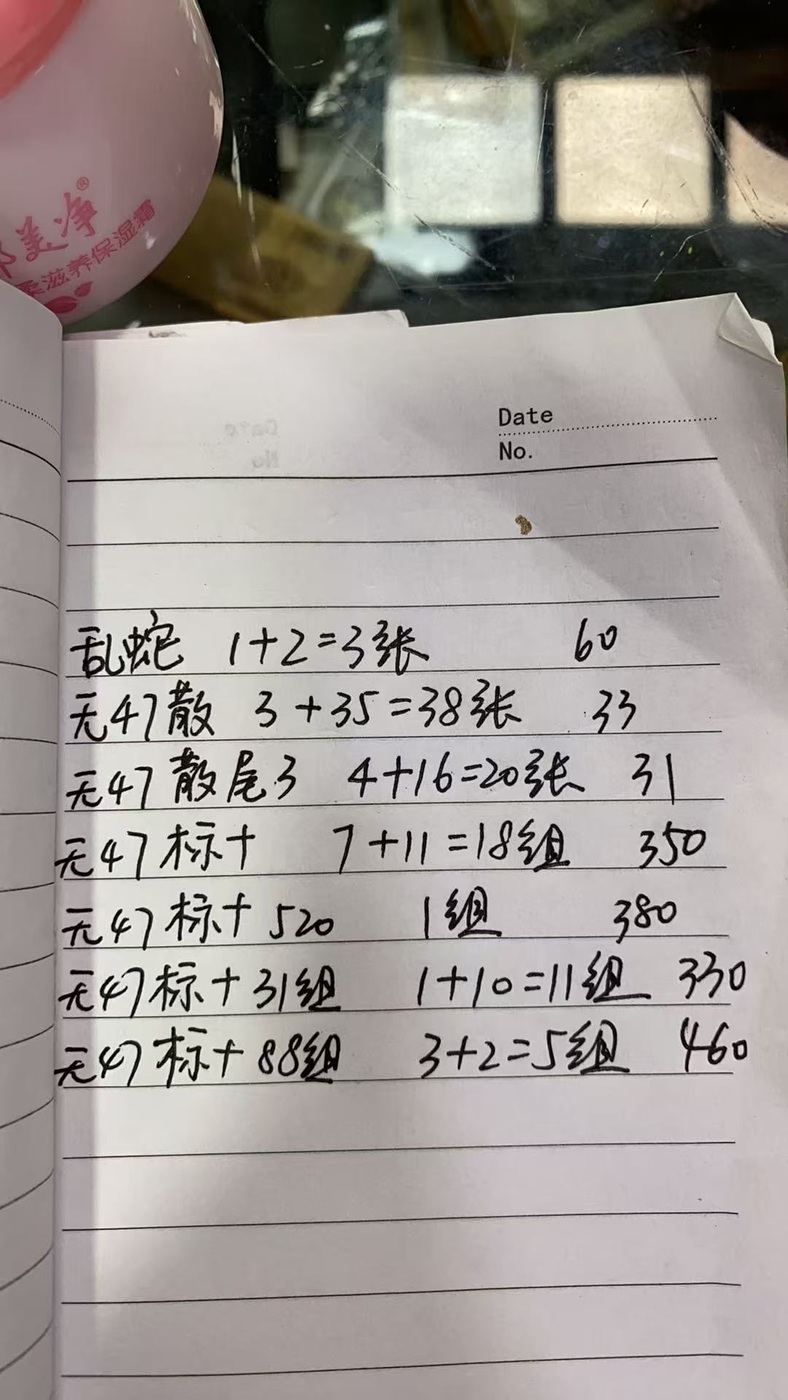 美净®
滋养保湿霜
Date
No.
乱蛇 1+2=3张 60
无47散 3+35=38张 33
无47散尾3 4+16=20张 31
无47标十 7+11=18组 350
无47标十520 1组 380
无47标十31组 1+10=11组 330
无47标十88组 3+2=5组 460